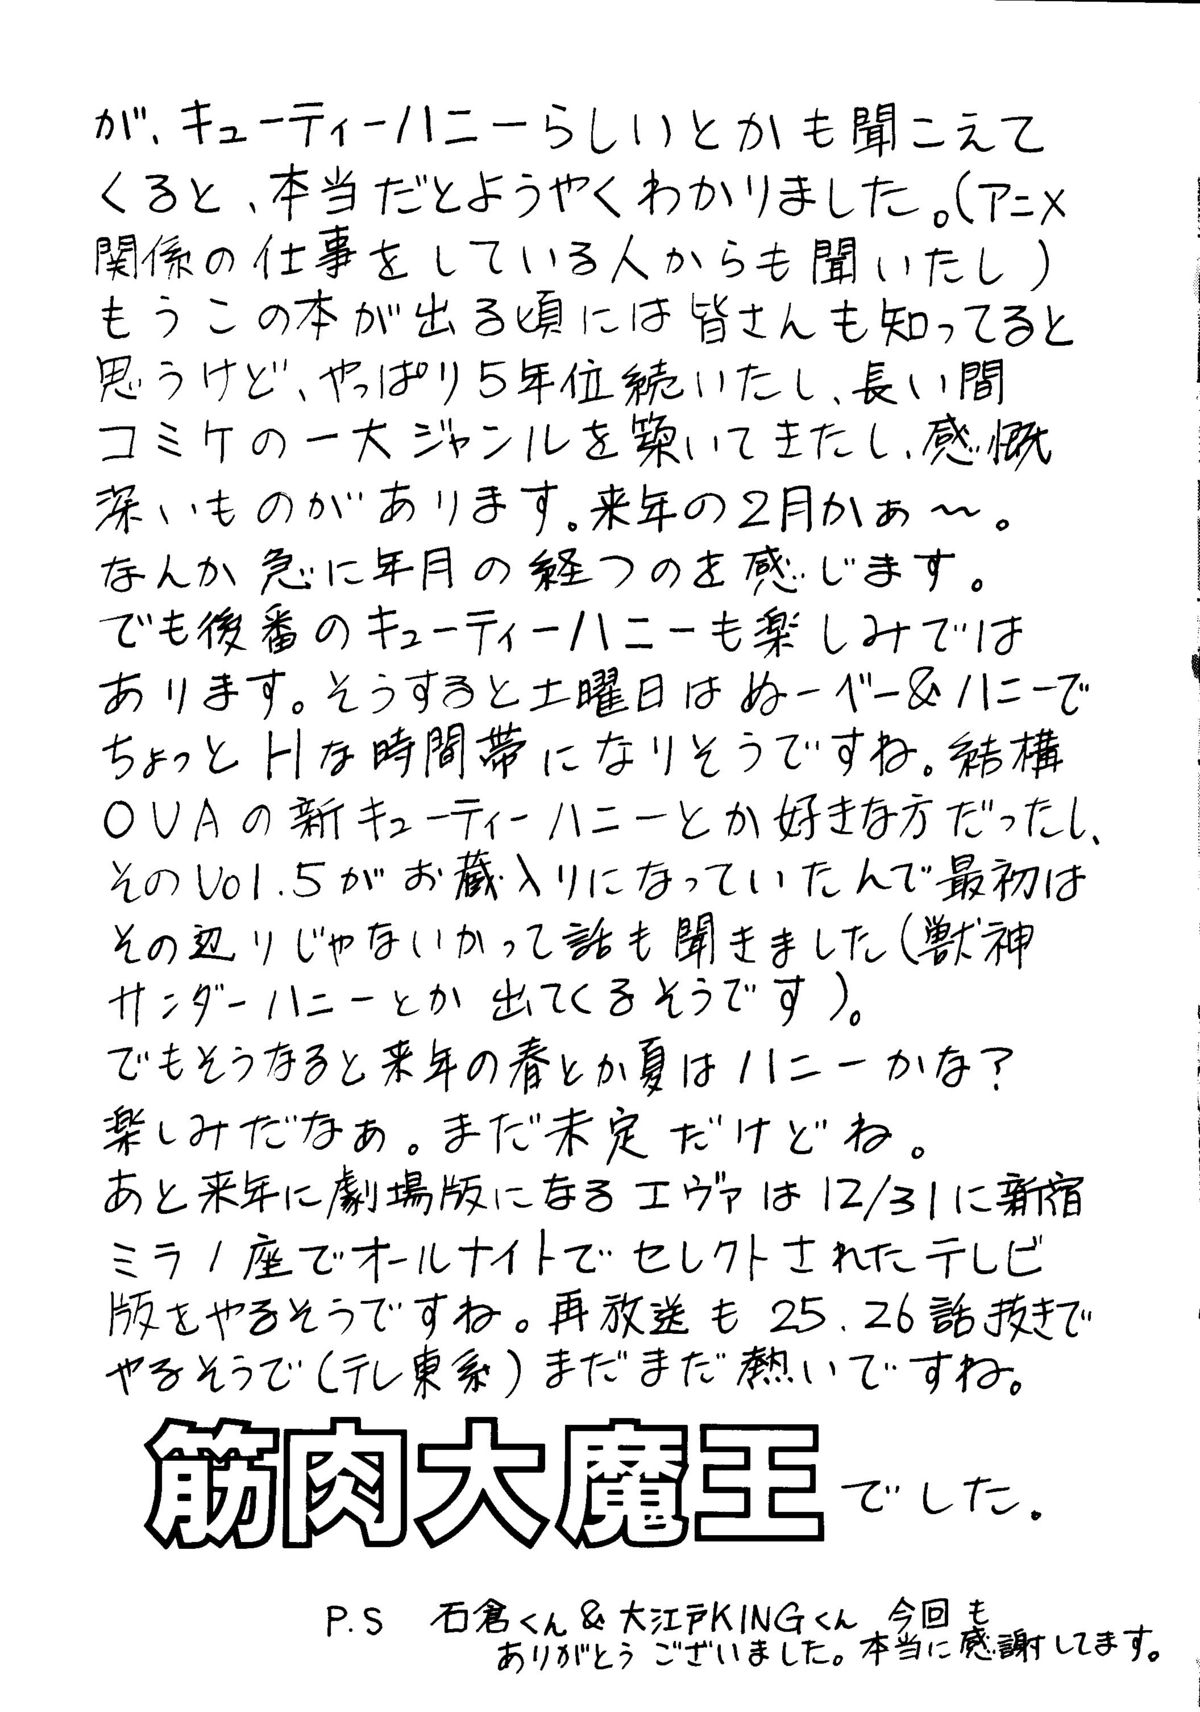 が、キューティーハニーらしいとかも聞こえて
くると、本当だとようやくわかりました。(アニメ
関係の仕事をしている人からも聞いたし)
もうこの本が出る頃には皆さんも知ってると
思うけど、やっぱり5年位続いたし、長い間
コミケの一大ジャンルを築いてきたし、感慨
深いものがあります。来年の2月かぁ〜。
なんか急に年月の経つのを感じます。
でも後番のキューティーハニーも楽しみでは
あります。そうすると土曜日はぬーべー&ハニーで
ちょっとHな時間帯になりそうですね。結構
OVAの新キューティーハニーとか好きな方だったし、
そのVol.5がお蔵入りになっていたんで最初は
その辺りじゃないかって話も聞きました(獣神
サンダーハニーとか出てくるそうです)。
でもそうなると来年の春とか夏はハニーかな?
楽しみだなぁ。まだ未定だけどね。
あと来年に劇場版になるエヴァは12/31に新宿
ミラノ座でオールナイトでセレクトされたテレビ
版をやるそうですね。再放送も25.26話抜きで
やるそうで(テレ東系)まだまだ熱いですね。
筋肉大魔王でした.
P.S 石倉くん&大江戸KINGくん 今回も
ありがとうございました。本当に感謝してます。